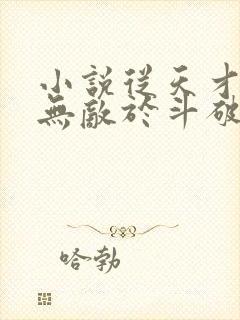 小說從天才
無敵於斗破
哈勃